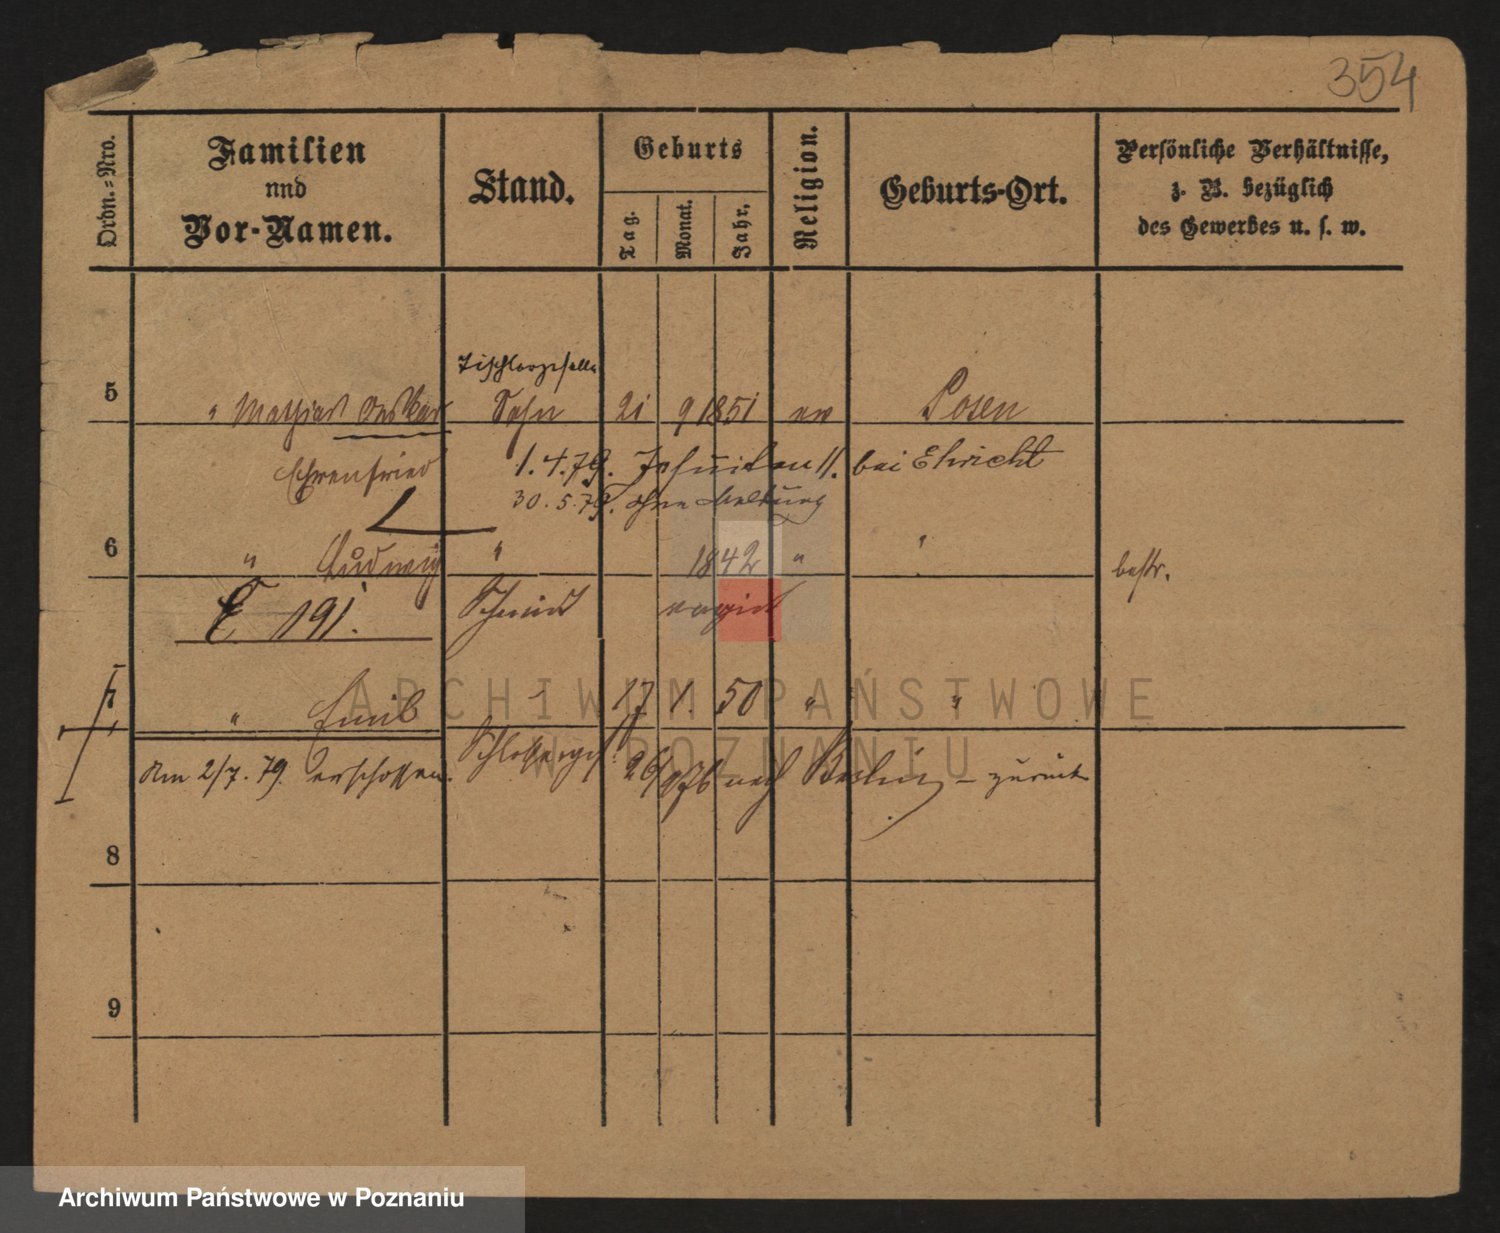 354
Ordn.=Nro.
Familien
und
Vor-Namen.
Stand.
Geburts
Tag.
Monat.
Jahr.
Religion.
Geburts-Ort.
Persönliche Verhältnisse,
z. B. bezüglich
des Gewerbes u. s. w.
Tischlergeselle
5 " Mathias Oskar Sohn 21 9 1851 ev Posen
Ehrenfried 1.4.79. Jesuiten 11. bei Ehricht
30.5.79. ohne Meldung
6 " Ludwig " 1842 " " bestr.
E 191. Schmidt
7 " Emil 17 1. 50 " "
Am 2/7.79. erschossen. Schlosserges. 26/9 76 nach Berlin – zurück
8
9
ARCHIWUM PAŃSTWOWE
W POZNANIU
Archiwum Państwowe w Poznaniu